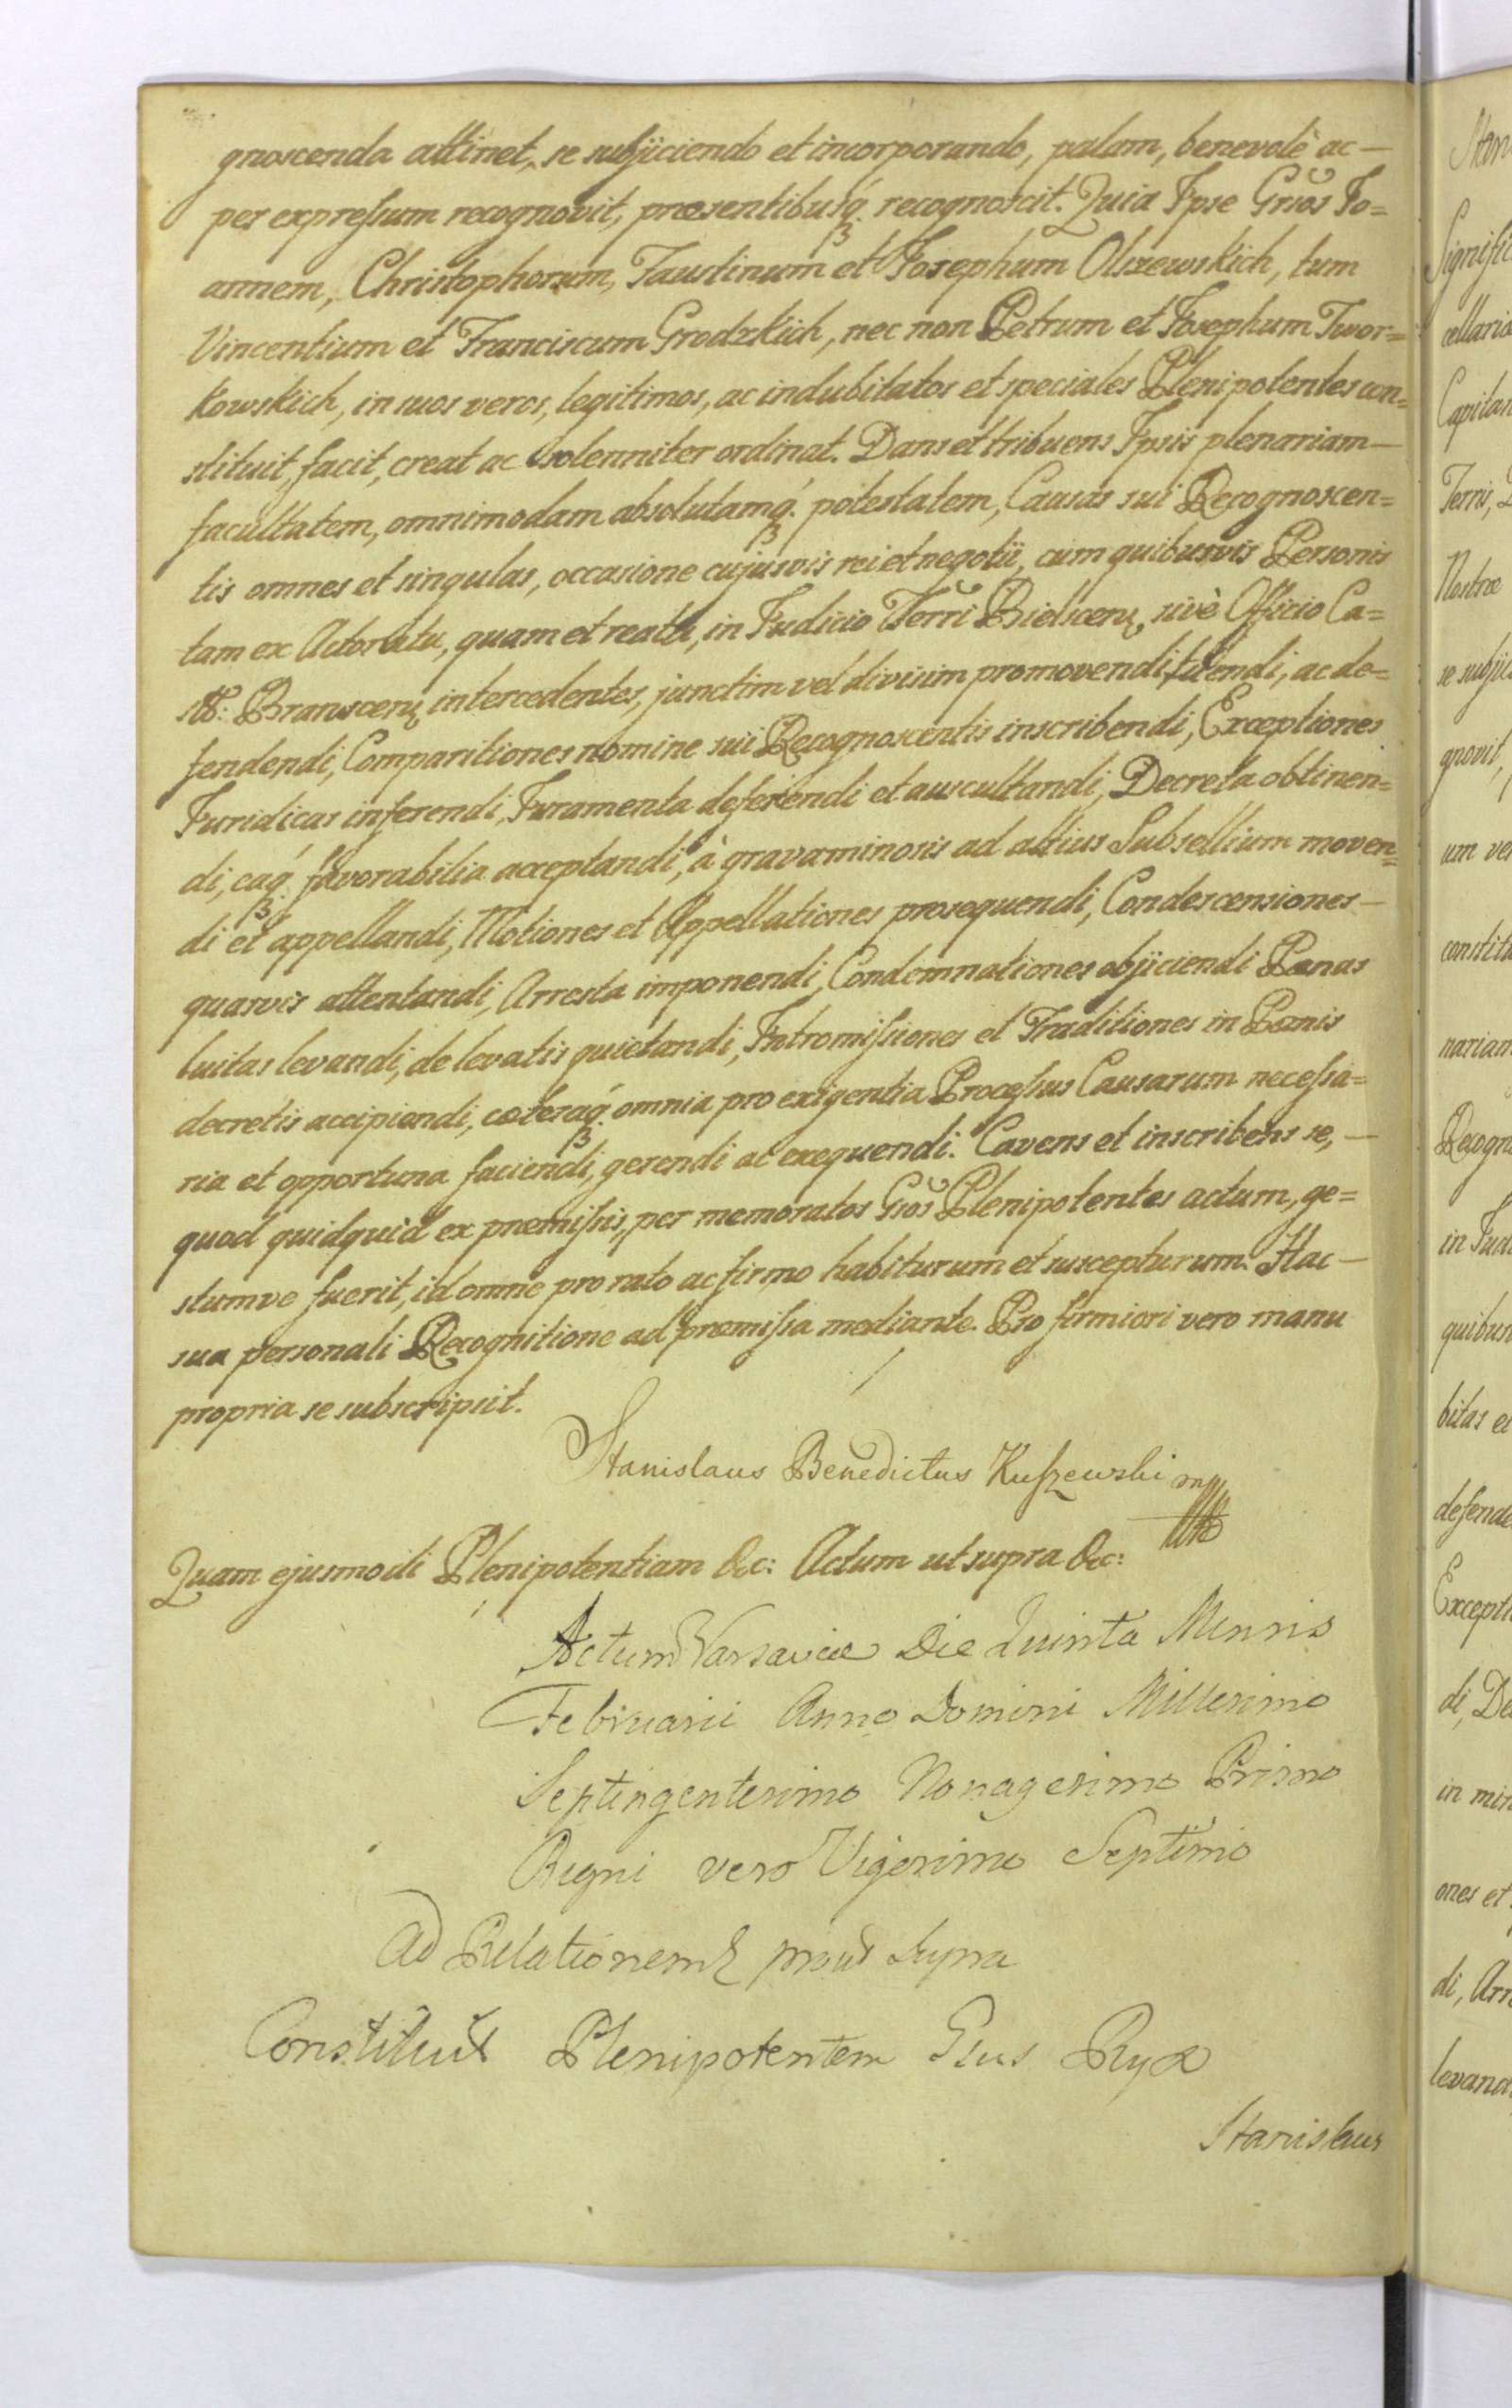 gnoscenda attinet, se subjiciendo et incorporando, palam, benevolè ac —
per expressum recognovit, præsentibusq́ꝫ recognoscit. Quia Ipse Grͦsos Jo=
annem, Christophorum, Faustinum et Josephum Olszewskich, tum
Vincentium et Franciscum Grodzkich, nec non Petrum et Josephum Twor=
kowskich, in suos veros, legitimos, ac indubitatos et speciales Plenipotentes con=
stituit, facit, creat ac solenniter ordinat. Dans et tribuens Ipsis plenariam —
facultatem, omnimodam absolutamq́ꝫ potestatem, Causas sui Recognoscen=
tis omnes et singulas, occasione cujusvis rei et negotii, cum quibusvis Personis
tam ex Actoratu, quam et reatu, in Judicio Terri Bielscen, sivè Officio Ca=
str: Branscen, intercedentes, junctim vel divisim promovendi, tuendi, ac de=
fendendi, Comparitiones nomine sui Recognoscentis inscribendi, Exceptiones
Juridicas inferendi, Juramenta deferendi et auscultandi, Decreta obtinen=
di, eaq́ꝫ favorabilia acceptandi, à gravaminosis ad altius Subsellium moven=
di et appellandi, Motiones et Appellationes prosequendi, Condescensiones —
quasvis attentandi, Arresta imponendi, Condemnationes objiciendi Pœnas
luitas levandi, de levatis quietandi, Intromissiones et Traditiones in Pœnis
decretis accipiendi, cæteraq́ꝫ omnia pro exigentia Processus Causarum necessa=
ria et opportuna faciendi, gerendi ac exequendi. Cavens et inscribens se, —
quod quidquid ex præmissis, per memoratos Gsos Plenipotentes actum, ge=
stumve fuerit, id omne pro rato ac firmo habiturum et suscepturum. Hac —
sua personali Recognitione ad præmissa mediante. Pro firmiori vero manu
propria se subscripsit.
Stanislaus Benedictus Kuszewski mp
Quam ejusmodi Plenipotentiam &c: Actum ut supra &c:
Actum Varsaviæ Die Quinta Mensis
Februarii Anno Domini Millesimo
Septingentesimo Nonagesimo Primo
Regni vero Vigesimo Septimo
Ad Relationem prout supra
Constituit Plenipotentem Gsus Ryx
Stanislaus